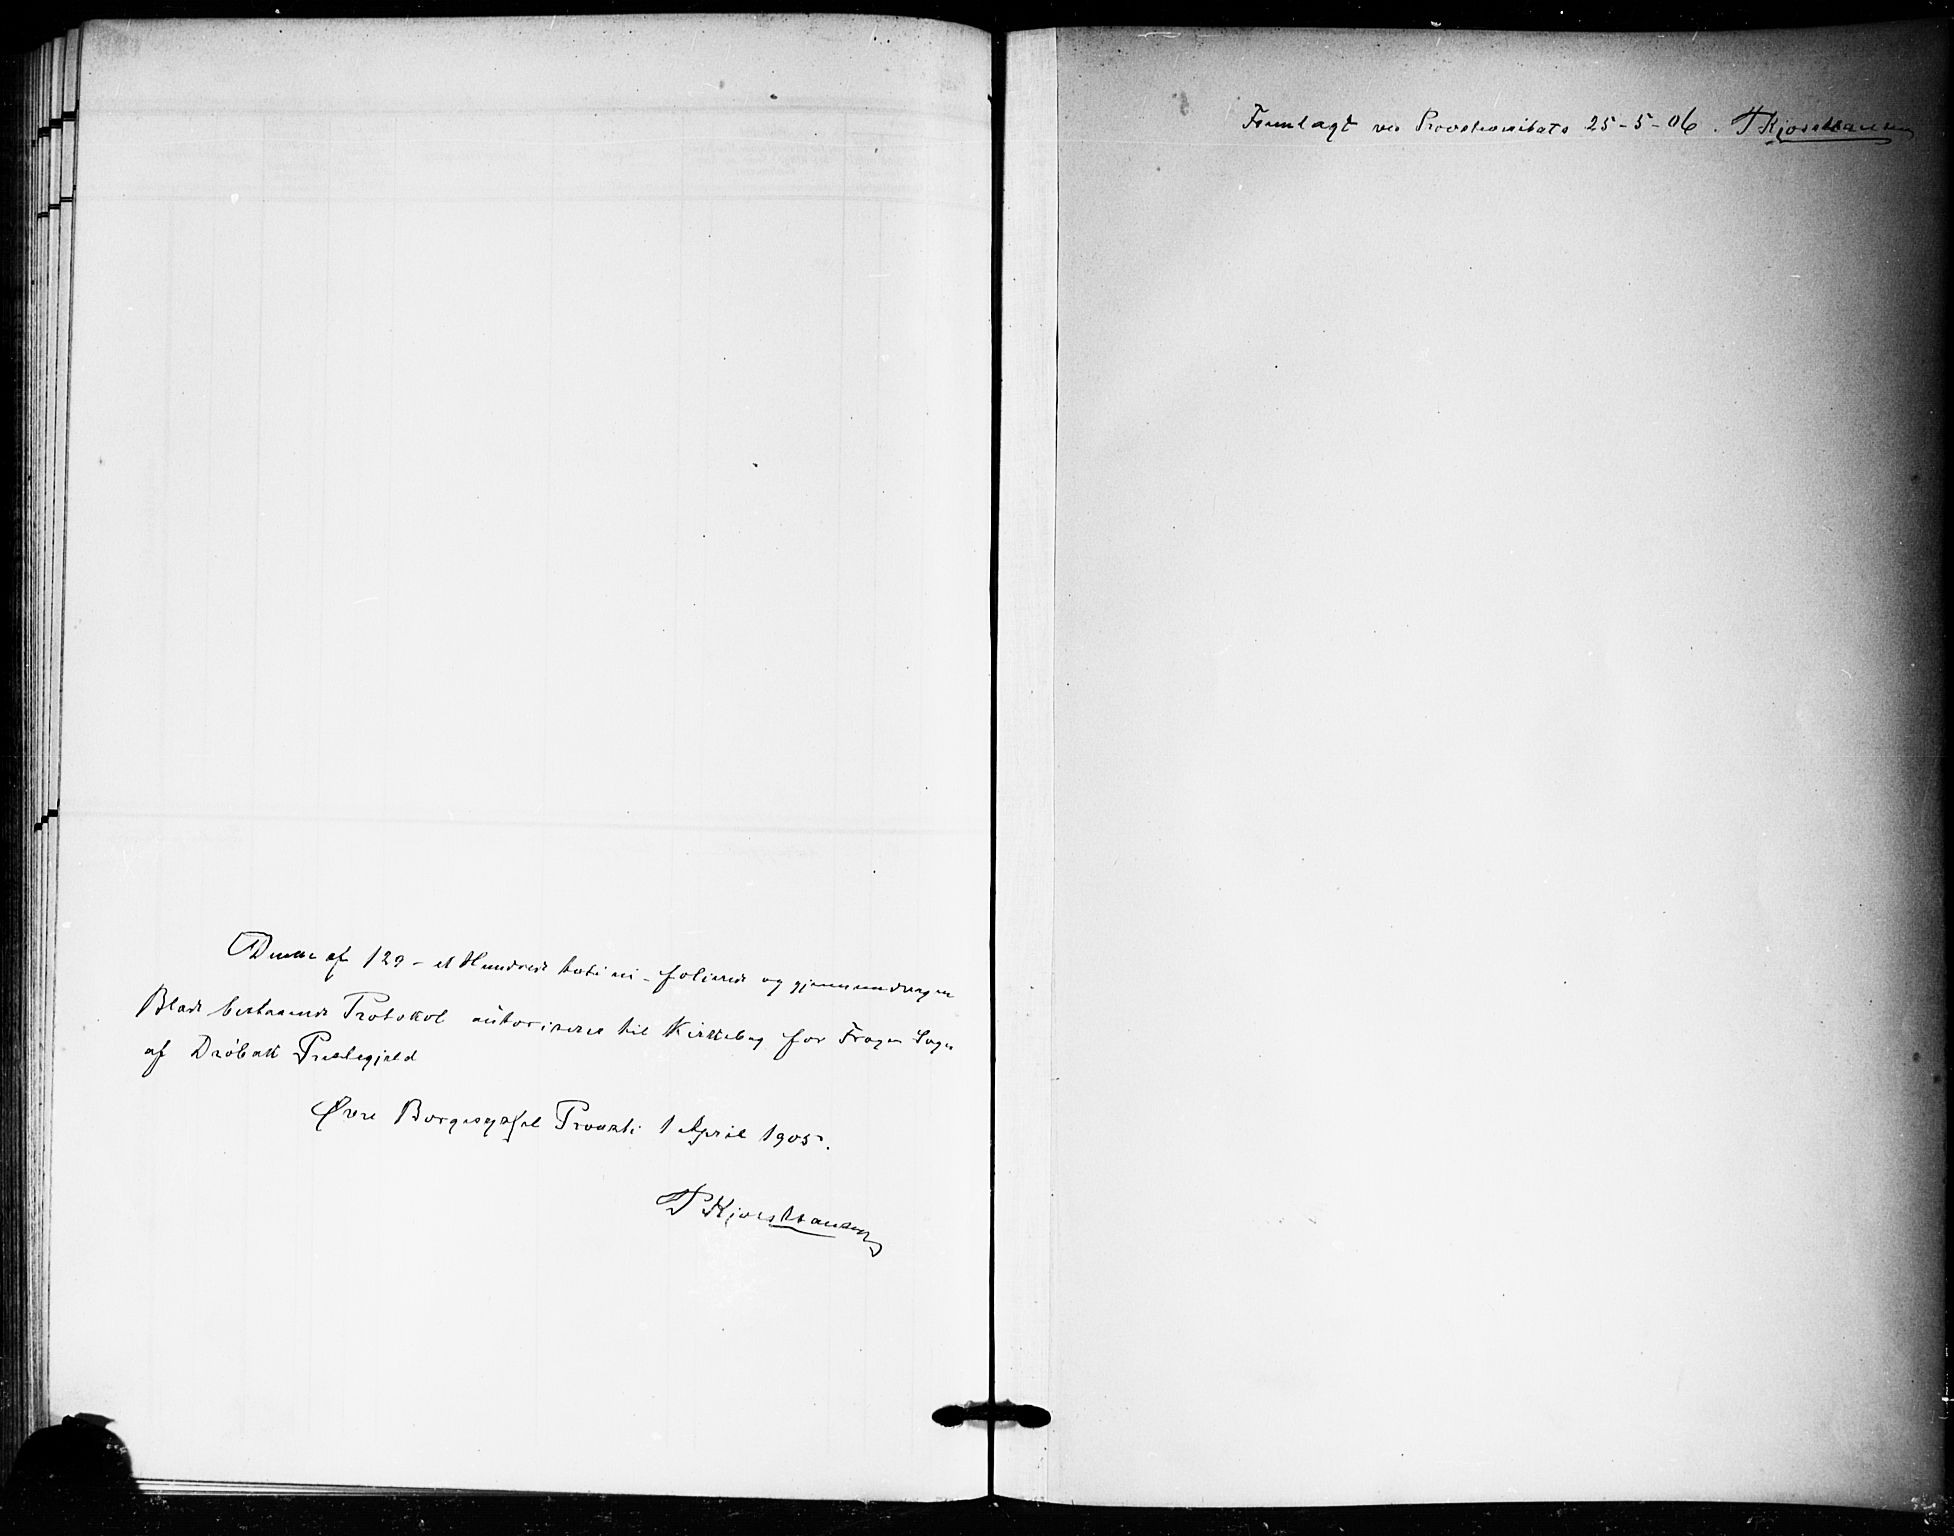 Denne af 129 – et Hundrede toti ni – foliered og gjennemdragen
Blade bestaaende Protokol autoriseres til Kirkebog for Frogn Sogn
af Drøbak Prestegjeld
Øvre Borgesyssel Provsti 1 April 1905.
P Kjørs Hansen
Fremlagt ved Provstevisitats 25-5-06. P Kjørs Hansen